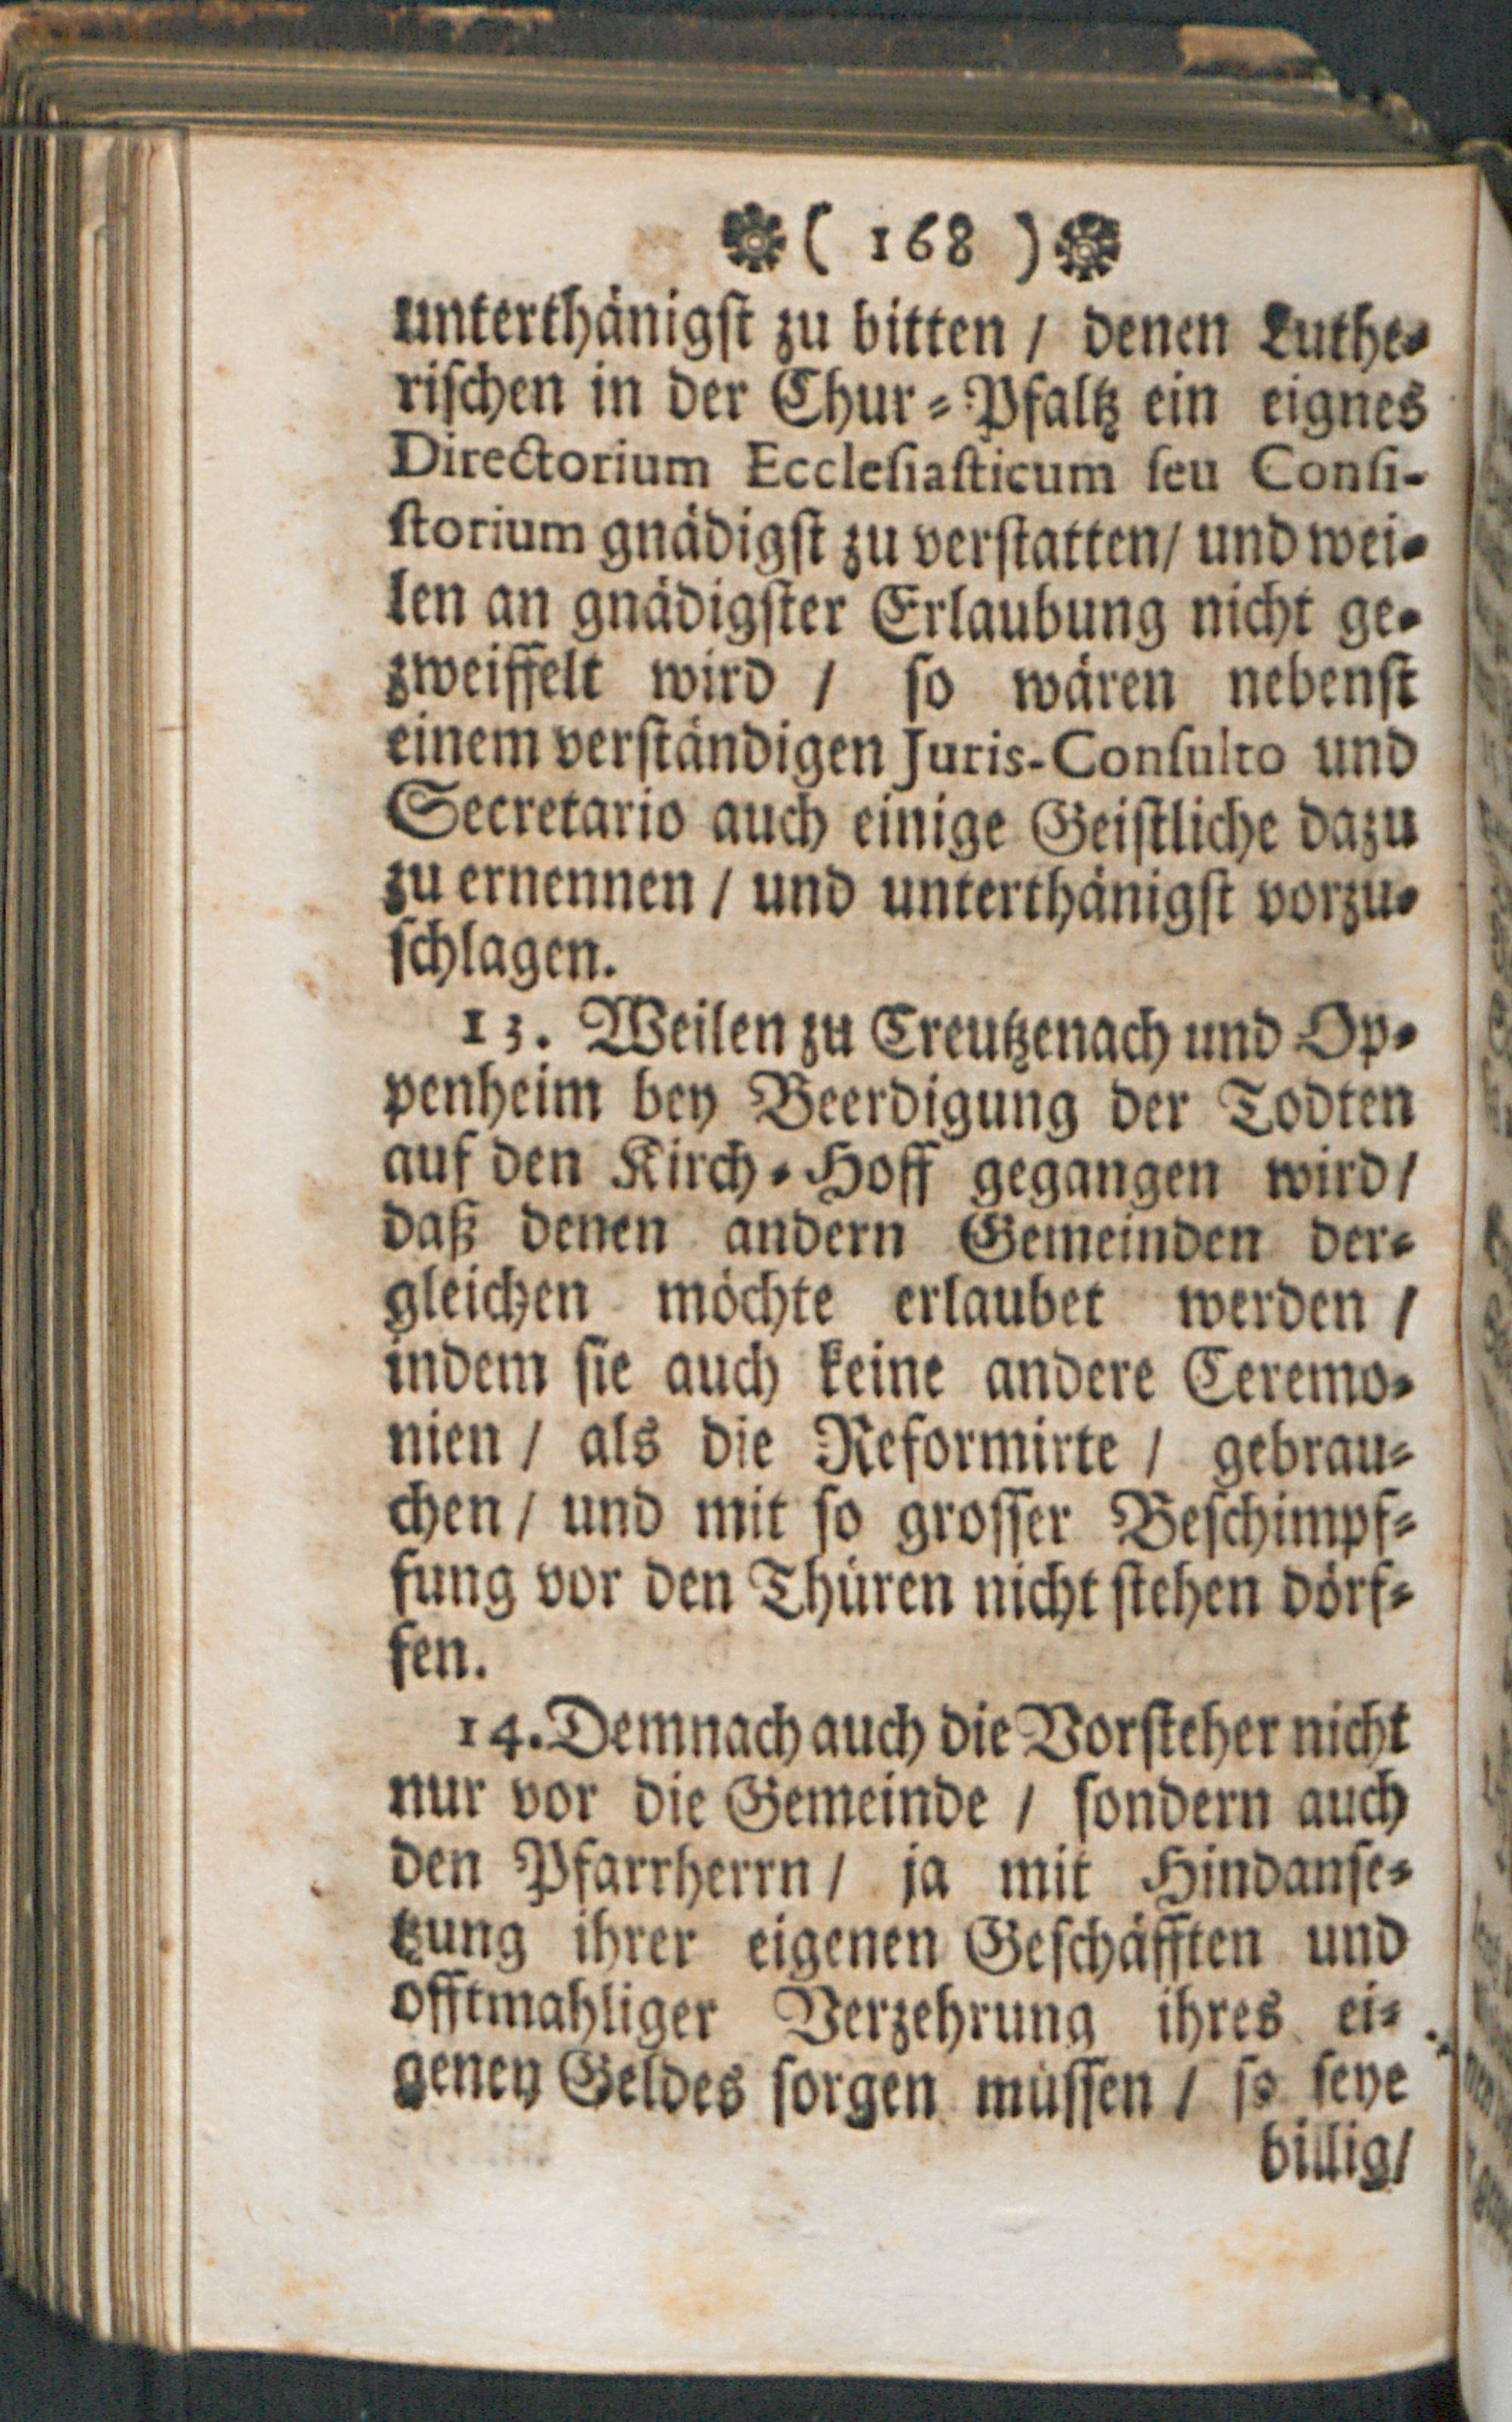 ( 168 )
unterthänigst zu bitten / denen Luthe-
rischen in der Chur-Pfaltz ein eignes
Directorium Ecclesiasticum seu Consi-
storium gnädigst zu verstatten/ und wei-
len an gnädigster Erlaubung nicht ge-
zweiffelt wird / so wären nebenst
einem verständigen Juris-Consulto und
Secretario auch einige Geistliche dazu
zu ernennen / und unterthänigst vorzu-
schlagen.
13. Weilen zu Creutzenach und Op-
penheim bey Beerdigung der Todten
auf den Kirch-Hoff gegangen wird/
daß denen andern Gemeinden der-
gleichen möchte erlaubet werden /
indem sie auch keine andere Ceremo-
nien / als die Reformirte / gebrau-
chen / und mit so grosser Beschimpf-
fung vor den Thüren nicht stehen dörf-
fen.
14. Demnach auch die Vorsteher nicht
nur vor die Gemeinde / sondern auch
den Pfarrherrn / ja mit Hindanse-
tzung ihrer eigenen Geschäfften und
offtmahliger Verzehrung ihres ei-
genen Geldes sorgen müssen / so seye
billig/